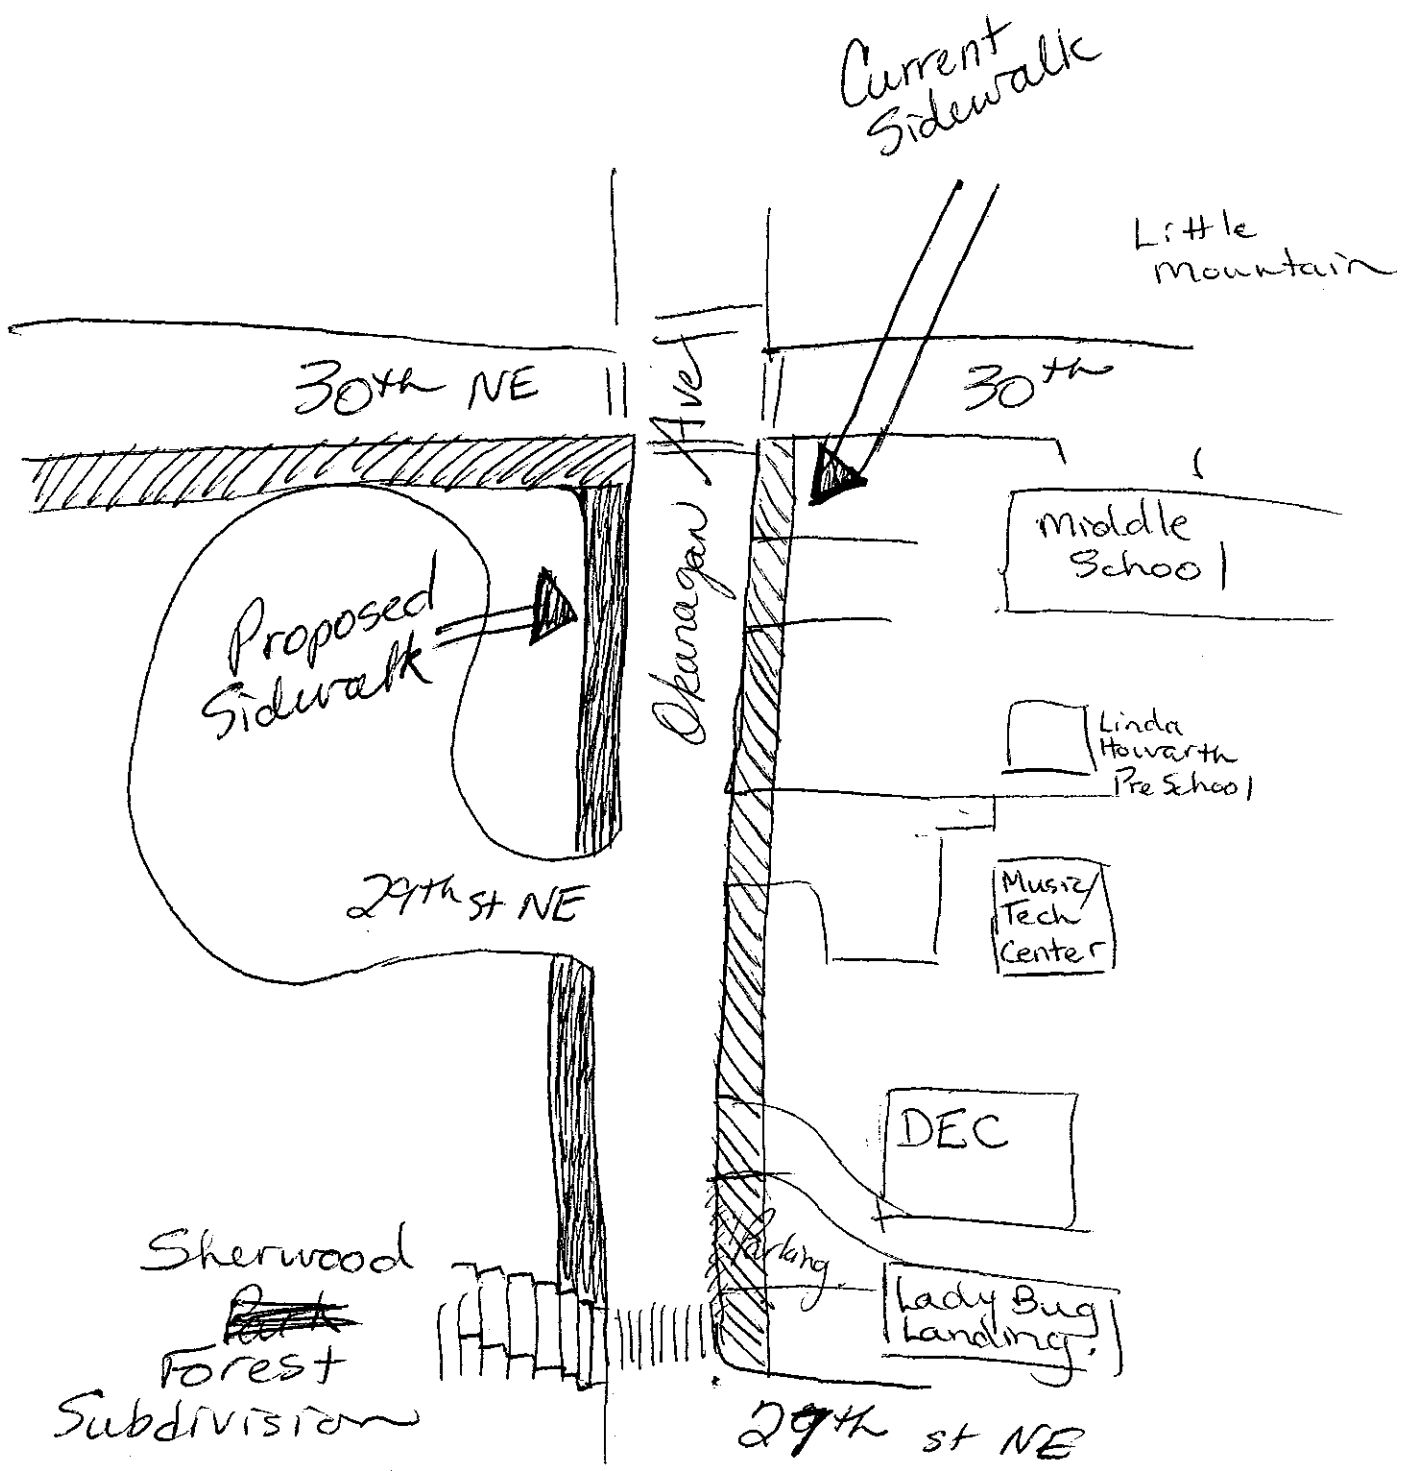 Current
Sidewalk
Little
Mountain
30th NE
Okanagan Ave
30th
Middle
School
Proposed
Sidewalk
Linda
Howarth
PreSchool
29th St NE
Music/
Tech
Center
DEC
Parking.
Sherwood
Forest
Subdivision
Lady Bug
Landing.
29th St NE